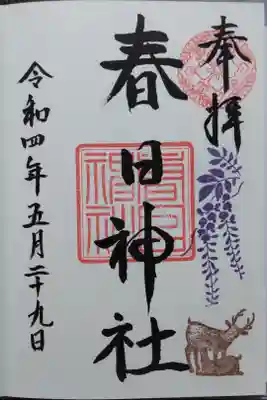 奉拝
春日神社
令和四年五月二十九日